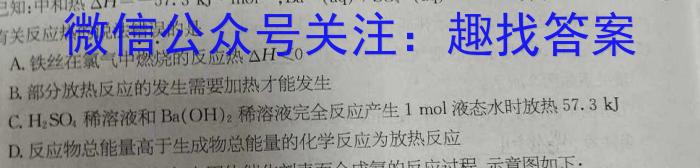 已知:中和热 ΔH=-57.3 kJ·mol
有关反应热的说法错误的是
微信公众号关注:趣找答案
A. 铁丝在氯气中燃烧的反应热 ΔH<0
B. 部分放热反应的发生需要加热才能发生
C. H₂SO₄ 稀溶液和 Ba(OH)₂ 稀溶液完全反应产生 1 mol 液态水时放热 57.3 kJ
D. 反应物总能量高于生成物总能量的化学反应为放热反应
表面合成氨的反应过程,示意图如下: